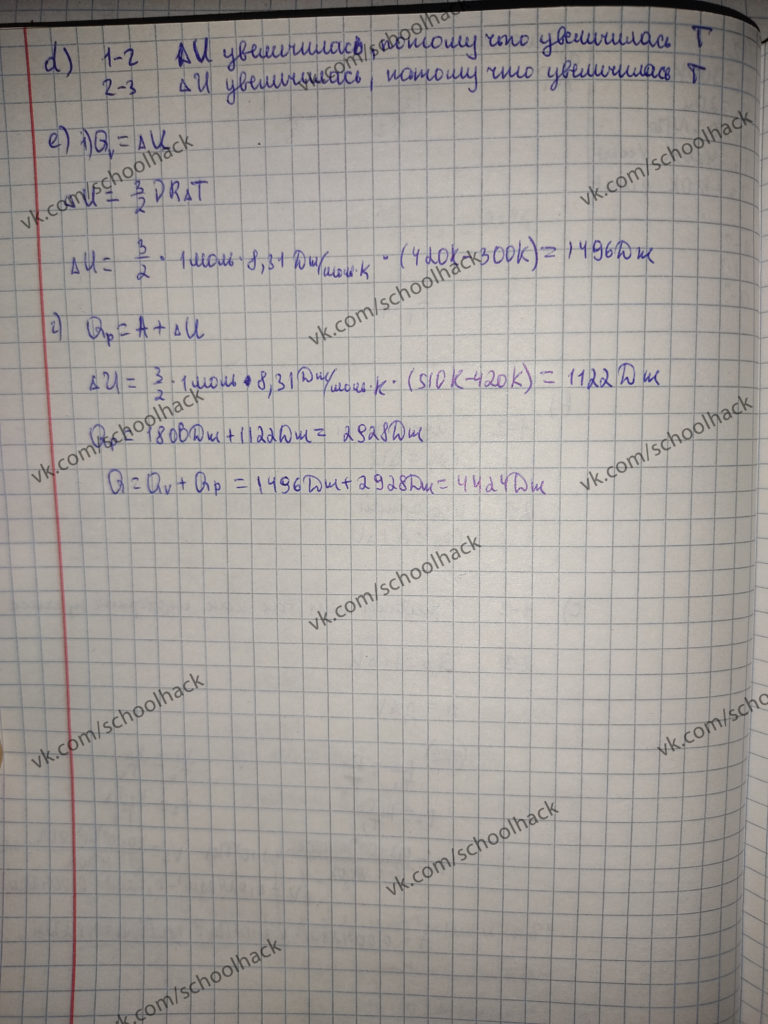 d) 1-2 ΔU увеличилась, потому что увеличилась T
2-3 ΔU увеличилась, потому что увеличилась T
e) 1) Qᵥ = ΔU
ΔU = 3/2 νRΔT
ΔU = 3/2 · 1моль · 8,31 Дж/моль·К · (420К - 300К) = 1496Дж
2) Qₚ = A + ΔU
ΔU = 3/2 · 1моль · 8,31 Дж/моль·К · (510К-420К) = 1122Дж
Qₚ = 1806Дж + 1122Дж = 2928Дж
Q = Qᵥ + Qₚ = 1496Дж + 2928Дж = 4424Дж
vk.com/schoolhack
vk.com/schoolhack
vk.com/schoolhack
vk.com/schoolhack
vk.com/schoolhack
vk.com/schoolhack
vk.com/schoolhack
vk.com/schoolhack
vk.com/schoolha
vk.com/schoolhack
vk.com/schoolhack